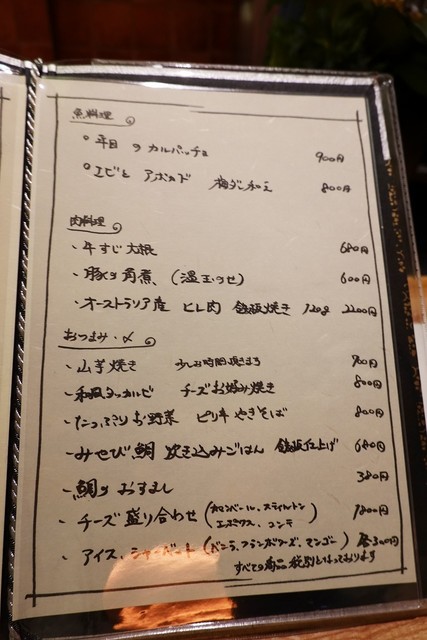 魚料理
平目のカルパッチョ 900円
エビとアボカド 梅ダレ和え 800円
肉料理
・牛すじ大根 680円
・豚の角煮 (温玉のせ) 600円
・オーストラリア産 ヒレ肉 鉄板焼き 120g 2200円
おつまみ・〆
・山芋焼き 少しお時間頂きます 700円
・和風タッカルビ チーズお好み焼き 800円
・たっぷりお野菜 ピリ辛やきそば 800円
・みやび鯛 炊き込みごはん 鉄板仕上げ 680円
・鯛のおすまし 380円
・チーズ盛り合わせ (カマンベール、スティルトン 1800円
エポワス、コンテ)
・アイス、シャーベット (バニラ、フランボワーズ、マンゴー) 各300円
すべての商品税別となっております